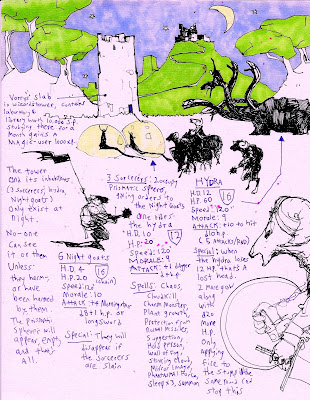 Vorngi's slab
in wizards tower, contains
laboratory &
library worth 10,000 gp
studying there for a
month gains a
Magic-user 1000 xp
The tower
and its inhabitants
(3 Sorcerers, hydra,
Night goats)
Only exist at
Night.
No-one
Can see
it or them
Unless:
they harm,
or have
been harmed
by them.
The Prismatic
Spheres will
appear empty
and that's
All.
6 Night goats
H.D. 4
H.P. 20
Speed: 120
Morale: 10
Attack: +4 Morningstar
d8+1 h.p. or
longsword
Special: They will
disappear if
the Sorcerers
are slain
3 Sorcerers: 2 occupy
Prismatic spheres,
giving orders to
the Night Goats
One rides
the hydra
H.D. 10
H.P. 20
12
Speed: 120
Morale: 9
Attack: +1 dagger
d4 h.p.
Spells: Chaos,
Cloudkill,
Charm Monster,
Plant growth,
Protection from
Normal Missiles,
Suggestion,
Hold person,
Wall of fog,
stinking cloud,
Mirror Image,
Phantasmal Force,
Sleep x3, summon
HYDRA
H.D. 12
H.P. 60
16
Speed: 120
Morale: 9
Attack: +10 to hit
d10 h.p.
(5 attacks/RND)
Special: when
the hydra loses
12 H.P. that's a
lost head.
2 more grow
along
with
d20
more
H.P.
Only
applying
fire to
the stump the
same round can
stop this